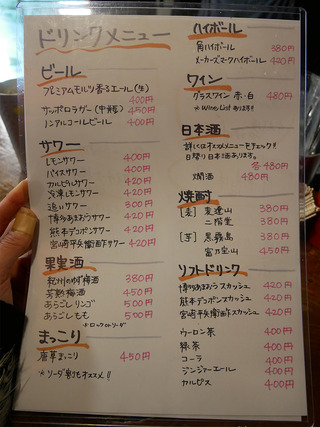 ドリンクメニュー
ビール
プレミアムモルツ香るエール(生)
400円
サッポロラガー(中瓶) 450円
ノンアルコールビール 400円
サワー
レモンサワー 400円
バイスサワー 400円
カルピスサワー 420円
冷凍レモンサワー 420円
追いサワー 300円
博多あまおうサワー 420円
熊本デコポンサワー 420円
宮崎平兵衛酢サワー 420円
果実酒
紀州の南高梅酒 380円
芳醇梅酒 450円
あらごしリンゴ 500円
あらごしもも 500円
※ロックorソーダ
まっこり
唐草まっこり 450円
※ソーダ割もオススメ!!
ハイボール
角ハイボール 380円
メーカーズマークハイボール 420円
ワイン
グラスワイン 赤・白 480円
※Wine Listあります!!
日本酒
詳しくはオススメメニューをチェック!!
日替り日本酒あります。
各 480円
燗酒 480円
焼酎
[麦] 麦達山 380円
二階堂 380円
[芋] 黒霧島 380円
富乃宝山 450円
ソフトドリンク
博多あまおうスカッシュ 420円
熊本デコポンスカッシュ 420円
宮崎平兵衛酢スカッシュ 420円
ウーロン茶 400円
緑茶 400円
コーラ 400円
ジンジャーエール 400円
カルピス 400円